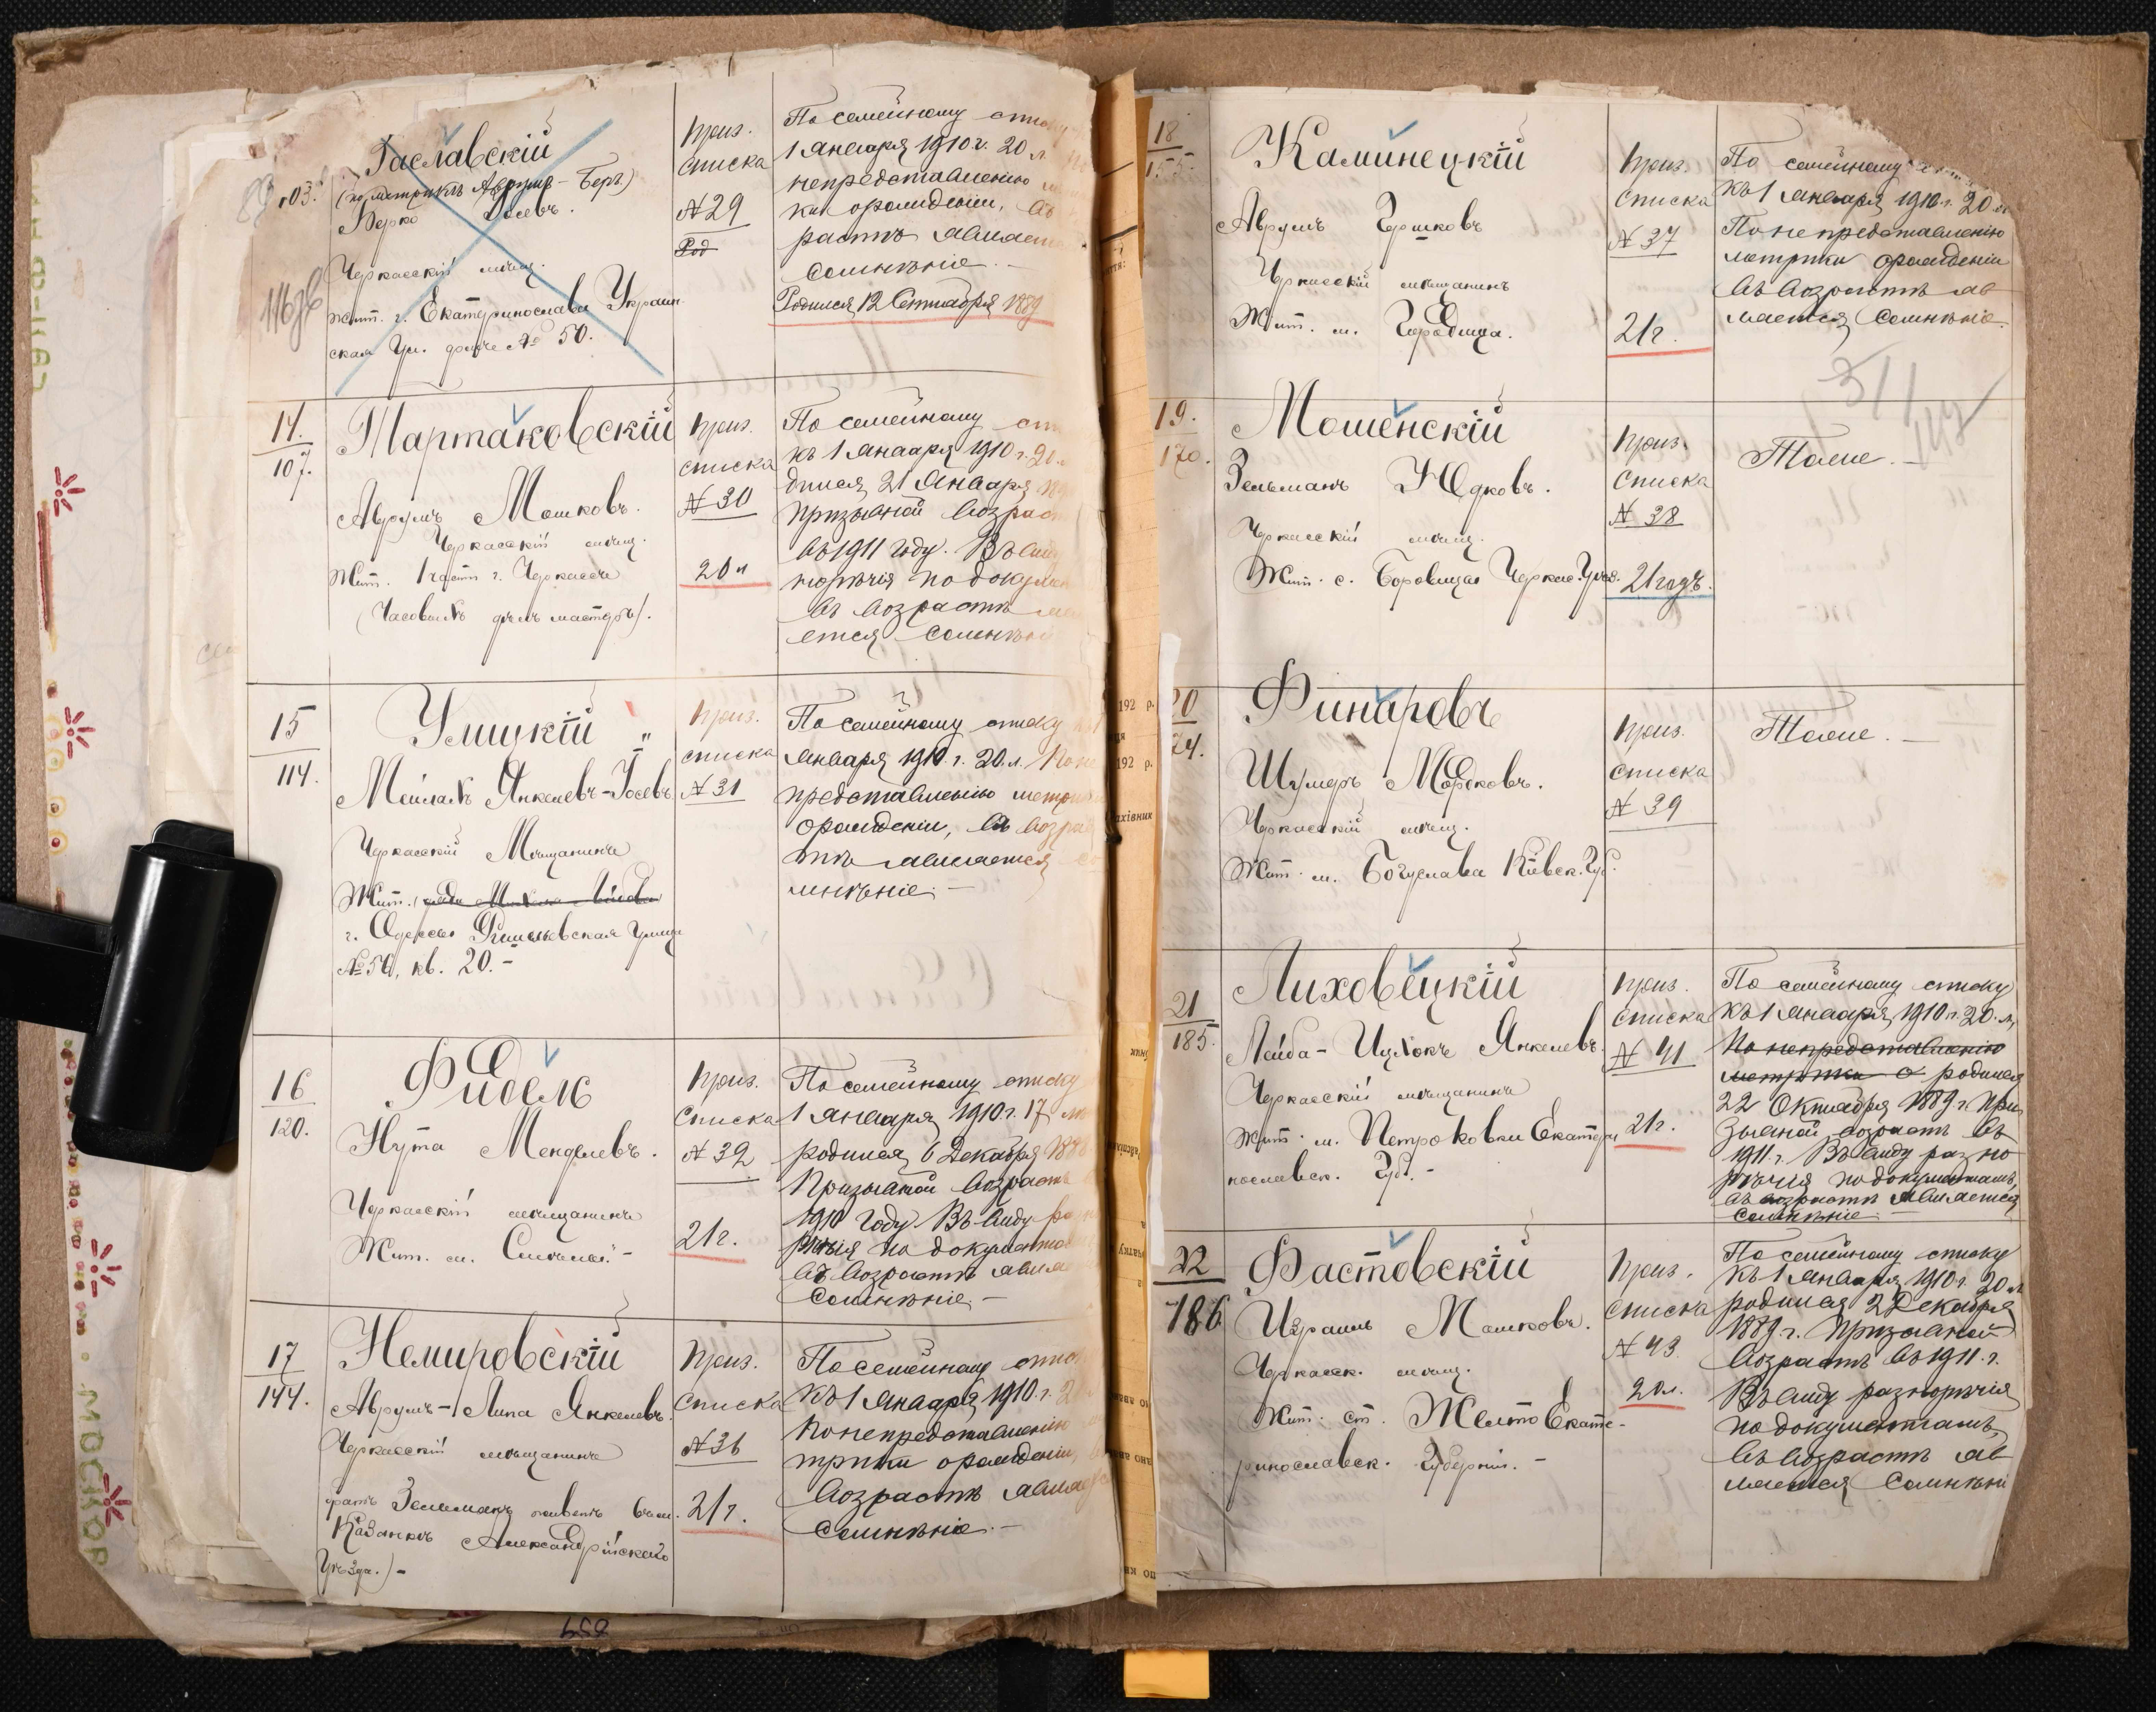 Заславскій
(по метрикѣ Аврумъ-Беръ)
Берко Іосевъ.
Черкасскій мѣщ.
жит. г. Екатеринослава Украин
ская Ул. домъ № 50.
Приз.
списка
№ 29
Род
По семейному списку
1 Января 1910 г. 20 л.
непредставленію
ки орожденіи, въ
растѣ является
сомнѣніе.
Родился 12 Сентября 1889
14.
107.
Тартаковскій
Аврумъ Мошковъ.
Черкасскій мѣщ.
Жит. 1 часть г. Черкассы
(Часовыхъ дѣлъ мастеръ).
Приз.
списка
№ 30
20 л
По семейному
къ 1 Января 1910 г. 20 л.
дился 21 Января
призывной возрас
въ 1911 году. Въ виду
норѣчія по докумен
въ возрастѣ
ется сомнѣні
15
114.
Улицкій
Мейлахъ Янкелевъ-Іосевъ
Черкасскій Мѣщанинъ
Жит.
г. Одессы улица
№ 56, кв. 20. -
Приз.
списка
№ 31
По семейному списку
Января 1910 г. 20 л. Поне
представленію метри
орожденіи, въ возра
тѣ является
мнѣніе. -
16
120.
Фидель
Нута Менделевъ.
Черкасскій мѣщанинъ
Жит. м. Смѣлы. -
Приз.
списка
№ 32
21 г.
По семейному списку
1 Января 1910 г. 17
родился 6 Декабря 188
Призывной возрастъ
1910 году Въ виду
рѣчія по документа
въ возрастѣ явля
сомнѣніе. -
17
144.
Немировскій
Аврумъ-Липа Янкелевъ.
Черкасскій мѣщанинъ
братъ Зельманъ живетъ
Казанкѣ Александрійскаго
Уѣзда.) -
Приз.
списка
№ 36
21 г.
По семейному списк
къ 1 Января 1910 г. 2
По непредставленію
трики орожденіи,
возрастѣ являе
сомнѣніе. -
18
155.
Каминецкій
Аврумъ Гершковъ
Черкасскій мѣщанинъ
Жит. м. Городища.
Приз.
списка
№ 37
21 г.
По семейному
къ 1 Января 1910 г. 20 л
По непредставленію
метрики орожденіи
въ возрастѣ яв
ляется сомнѣніе.
19.
170.
Мошенскій
Зельманъ Юдковъ.
Черкасскій мѣщ.
Жит. с. Боровицы Черкас. Уѣзд.
Приз.
списка
№ 38
21 годъ.
Тоже. -
20
74.
Финаровъ
Шулимъ Мордковъ.
Черкасскій мѣщ.
Жит. м. Богуслава Кіевск. Губ.
Приз.
списка
№ 39
Тоже. -
21
185.
Лиховецкій
Лейба-Ицхокъ Янкелевъ.
Черкасскій мѣщанинъ
Жит. м. Петроковки Екатери
нославск. Губ. -
Приз.
списка
№ 41
21 г.
По семейному списку
къ 1 Января 1910 г. 20 л,
По непредставленію
метрики о родился
22 Октября 1889 г. При
зывной возрастъ въ
1911 г. Въ виду разно
рѣчія по документамъ,
въ возрастѣ является
сомнѣніе. -
22
186
Фастовскій
Израиль Мошковъ.
Черкасск. мѣщ.
Жит. ст. Желто Екате-
ринославск. Губерніи. -
Приз.
списка
№ 43
20 л.
По семейному списку
къ 1 Января 1910 г. 20 л
родился 2 Декабря
1889 г. Призывной
возрастъ въ 1911 г.
Въ виду разнорѣчія
по документамъ,
въ возрастѣ яв
ляется Сомнѣні
192 р.
192 р.